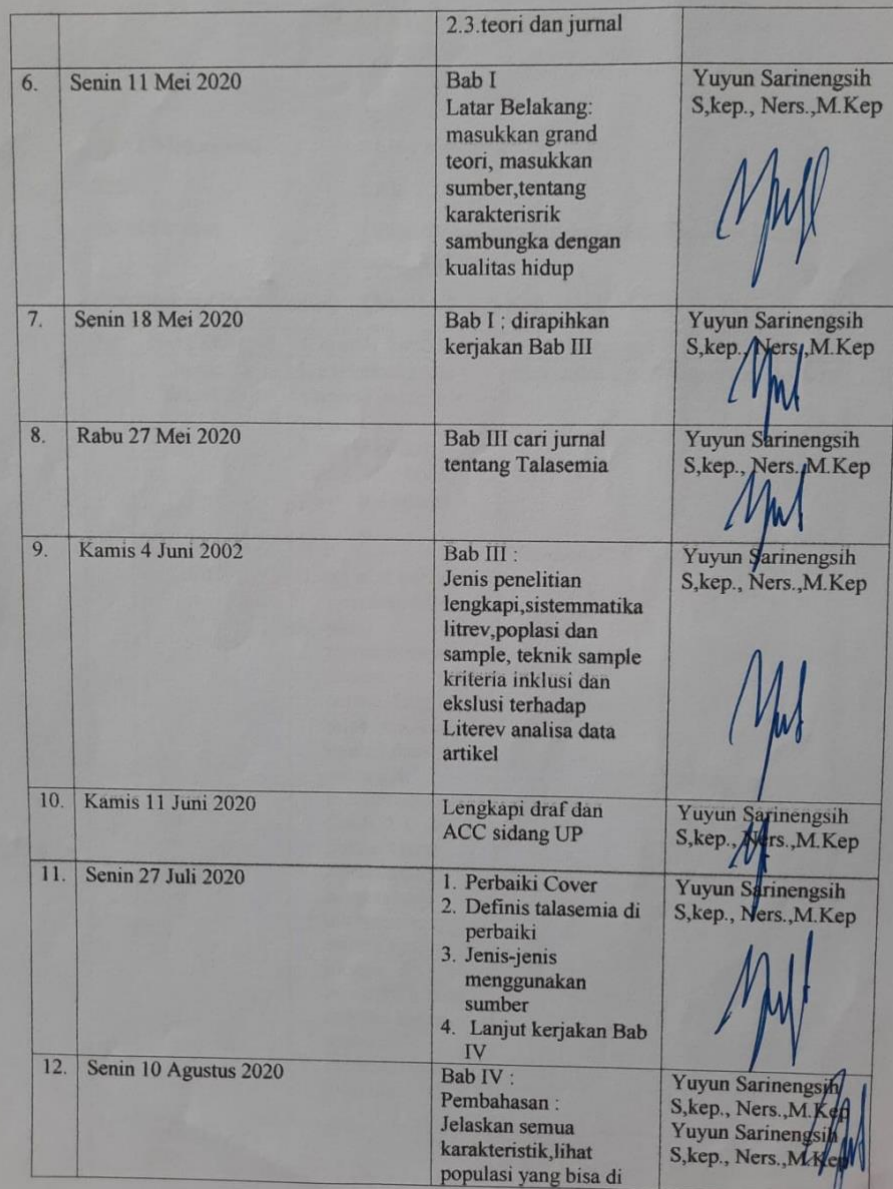 2.3.teori dan jurnal
6. Senin 11 Mei 2020
Bab I
Latar Belakang:
masukkan grand
teori, masukkan
sumber,tentang
karakterisrik
sambungka dengan
kualitas hidup
Yuyun Sarinengsih
S,kep., Ners.,M.Kep
7. Senin 18 Mei 2020
Bab I : dirapihkan
kerjakan Bab III
Yuyun Sarinengsih
S,kep., Ners.,M.Kep
8. Rabu 27 Mei 2020
Bab III cari jurnal
tentang Talasemia
Yuyun Sarinengsih
S,kep., Ners.,M.Kep
9. Kamis 4 Juni 2002
Bab III :
Jenis penelitian
lengkapi,sistemmatika
litrev,poplasi dan
sample, teknik sample
kriteria inklusi dan
ekslusi terhadap
Literev analisa data
artikel
Yuyun Sarinengsih
S,kep., Ners.,M.Kep
10. Kamis 11 Juni 2020
Lengkapi draf dan
ACC sidang UP
Yuyun Sarinengsih
S,kep., Ners.,M.Kep
11. Senin 27 Juli 2020
1. Perbaiki Cover
2. Definis talasemia di
perbaiki
3. Jenis-jenis
menggunakan
sumber
4. Lanjut kerjakan Bab
IV
Yuyun Sarinengsih
S,kep., Ners.,M.Kep
12. Senin 10 Agustus 2020
Bab IV :
Pembahasan :
Jelaskan semua
karakteristik,lihat
populasi yang bisa di
Yuyun Sarinengsih
S,kep., Ners.,M.Kep
Yuyun Sarinengsih
S,kep., Ners.,M.Kep